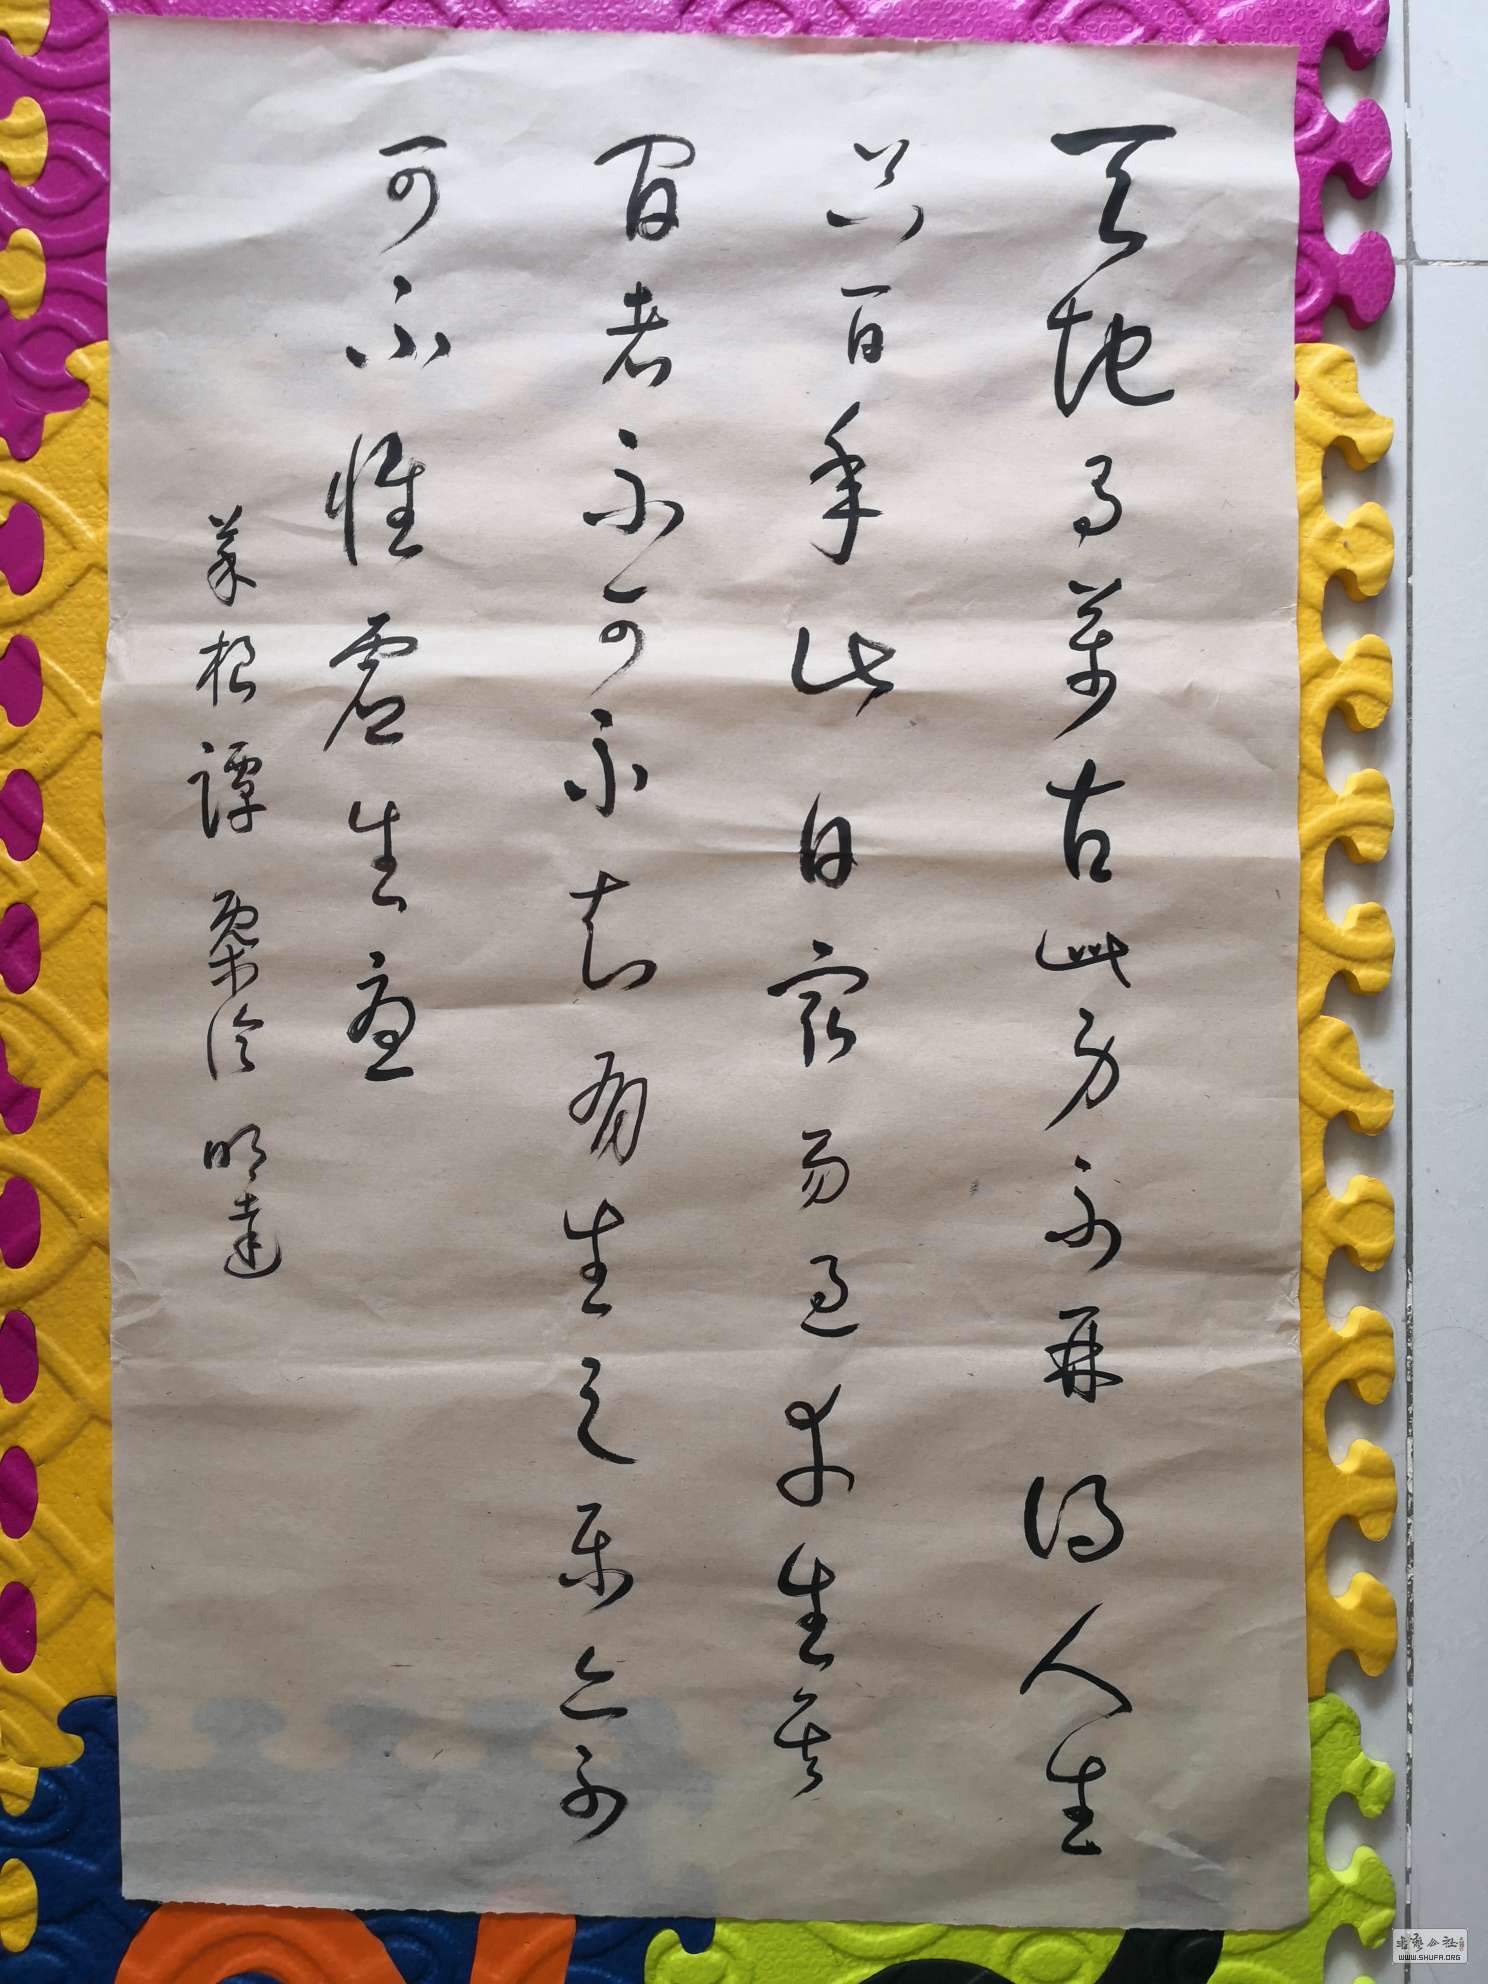 天地有萬古此身不再得人生
只百年此日最易过幸生其
间者不可不知有生之乐亦不
可不惟虚生憂
菜根谭 明達
书法公社
WWW.SHUFA.ORG